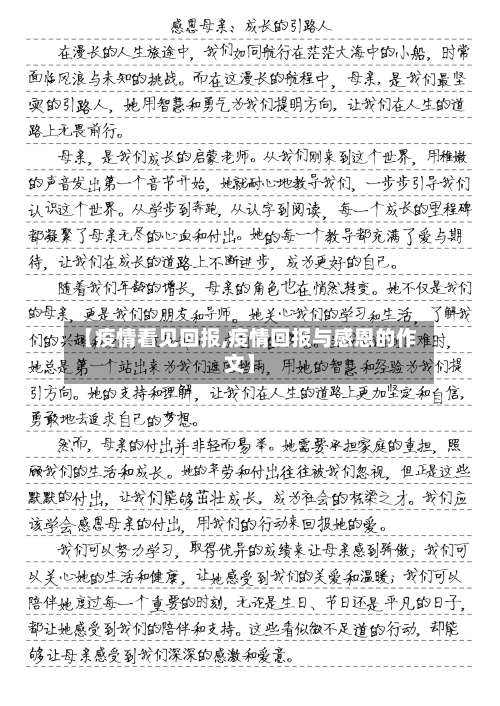 感恩母亲：成长的引路人
在漫长的人生旅途中，我们如同航行在茫茫大海中的小船，时常
面临风浪与未知的挑战。而在这漫长的航程中，母亲，是我们最坚
实的引路人，她用智慧和勇气为我们提明方向，让我们在人生的道
路上无畏前行。
母亲，是我们成长的启蒙老师。从我们刚来到这个世界，用稚嫩
的声音发出第一个音节开始，她就耐心地教导我们，一步步引导我们
认识这个世界。从学步到奔跑，从认字到阅读，每一个成长的里程碑
都凝聚了母亲无尽的心血和付出。她的每一个教导都充满了爱与期
待，让我们在成长的道路上不断进步，成为更好的自己。
随着我们年龄的增长，母亲的角色也在悄然转变。她不仅是我们
的母亲，更是我们的朋友和导师。她关心我们的学习和生活，了解我
们的兴趣和
难时，
【疫情看见回报,疫情回报与感恩的作
文】
她总是第一个站出来为我们遮风挡雨，用她的智慧和经验为我们提
引方向。她的支持和理解，让我们在人生的道路上更加坚定和自信，
勇敢地去追求自己的梦想。
然而，母亲的付出并非轻而易举。她需要承担家庭的重担，照
顾我们的生活和成长。她的辛劳和付出往往被我们忽视，但正是这些
默默的付出，让我们能够茁壮成长，成为社会的栋梁之才。我们应
该学会感恩母亲的付出，用我们的行动来回报她的爱。
我们可以努力学习，取得优异的成绩来让母亲感到骄傲；我们可
以关心她的生活和健康，让她感受到我们的关爱和温暖；我们可以
陪伴她度过每一个重要的时刻，无论是生日、节日还是平凡的日子，
都让她感受到我们的陪伴和支持。这些看似微不足道的行动，却能
够让母亲感受到我们深深的感激和爱意。